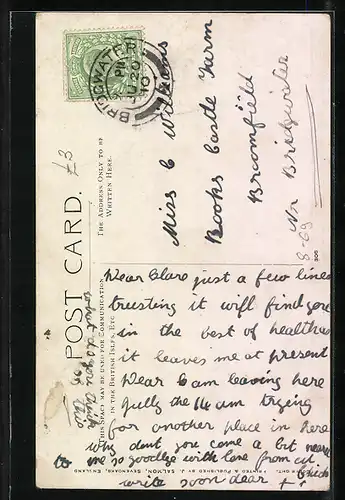 BRIDGWATER
PM
JU 20
10
Miss C Williams
Books Castle Farm
Broomfield
Nr Bridgwater
8-69
£3
POST CARD.
THE ADDRESS ONLY TO BE
WRITTEN HERE.
THIS SPACE MAY BE USED FOR COMMUNICATION
IN THE BRITISH ISLES, ETC.
PRINTED & PUBLISHED BY J. SALMON, SEVENOAKS, ENGLAND
Dear Clare just a few lines
trusting it will find you
in the best of health as
it leaves me at present
Dear I am leaving here
July the 14 am trying
for another place in here
why dont you come a bit nearer
to me so goodbye with love from
write soon dear
what do you think